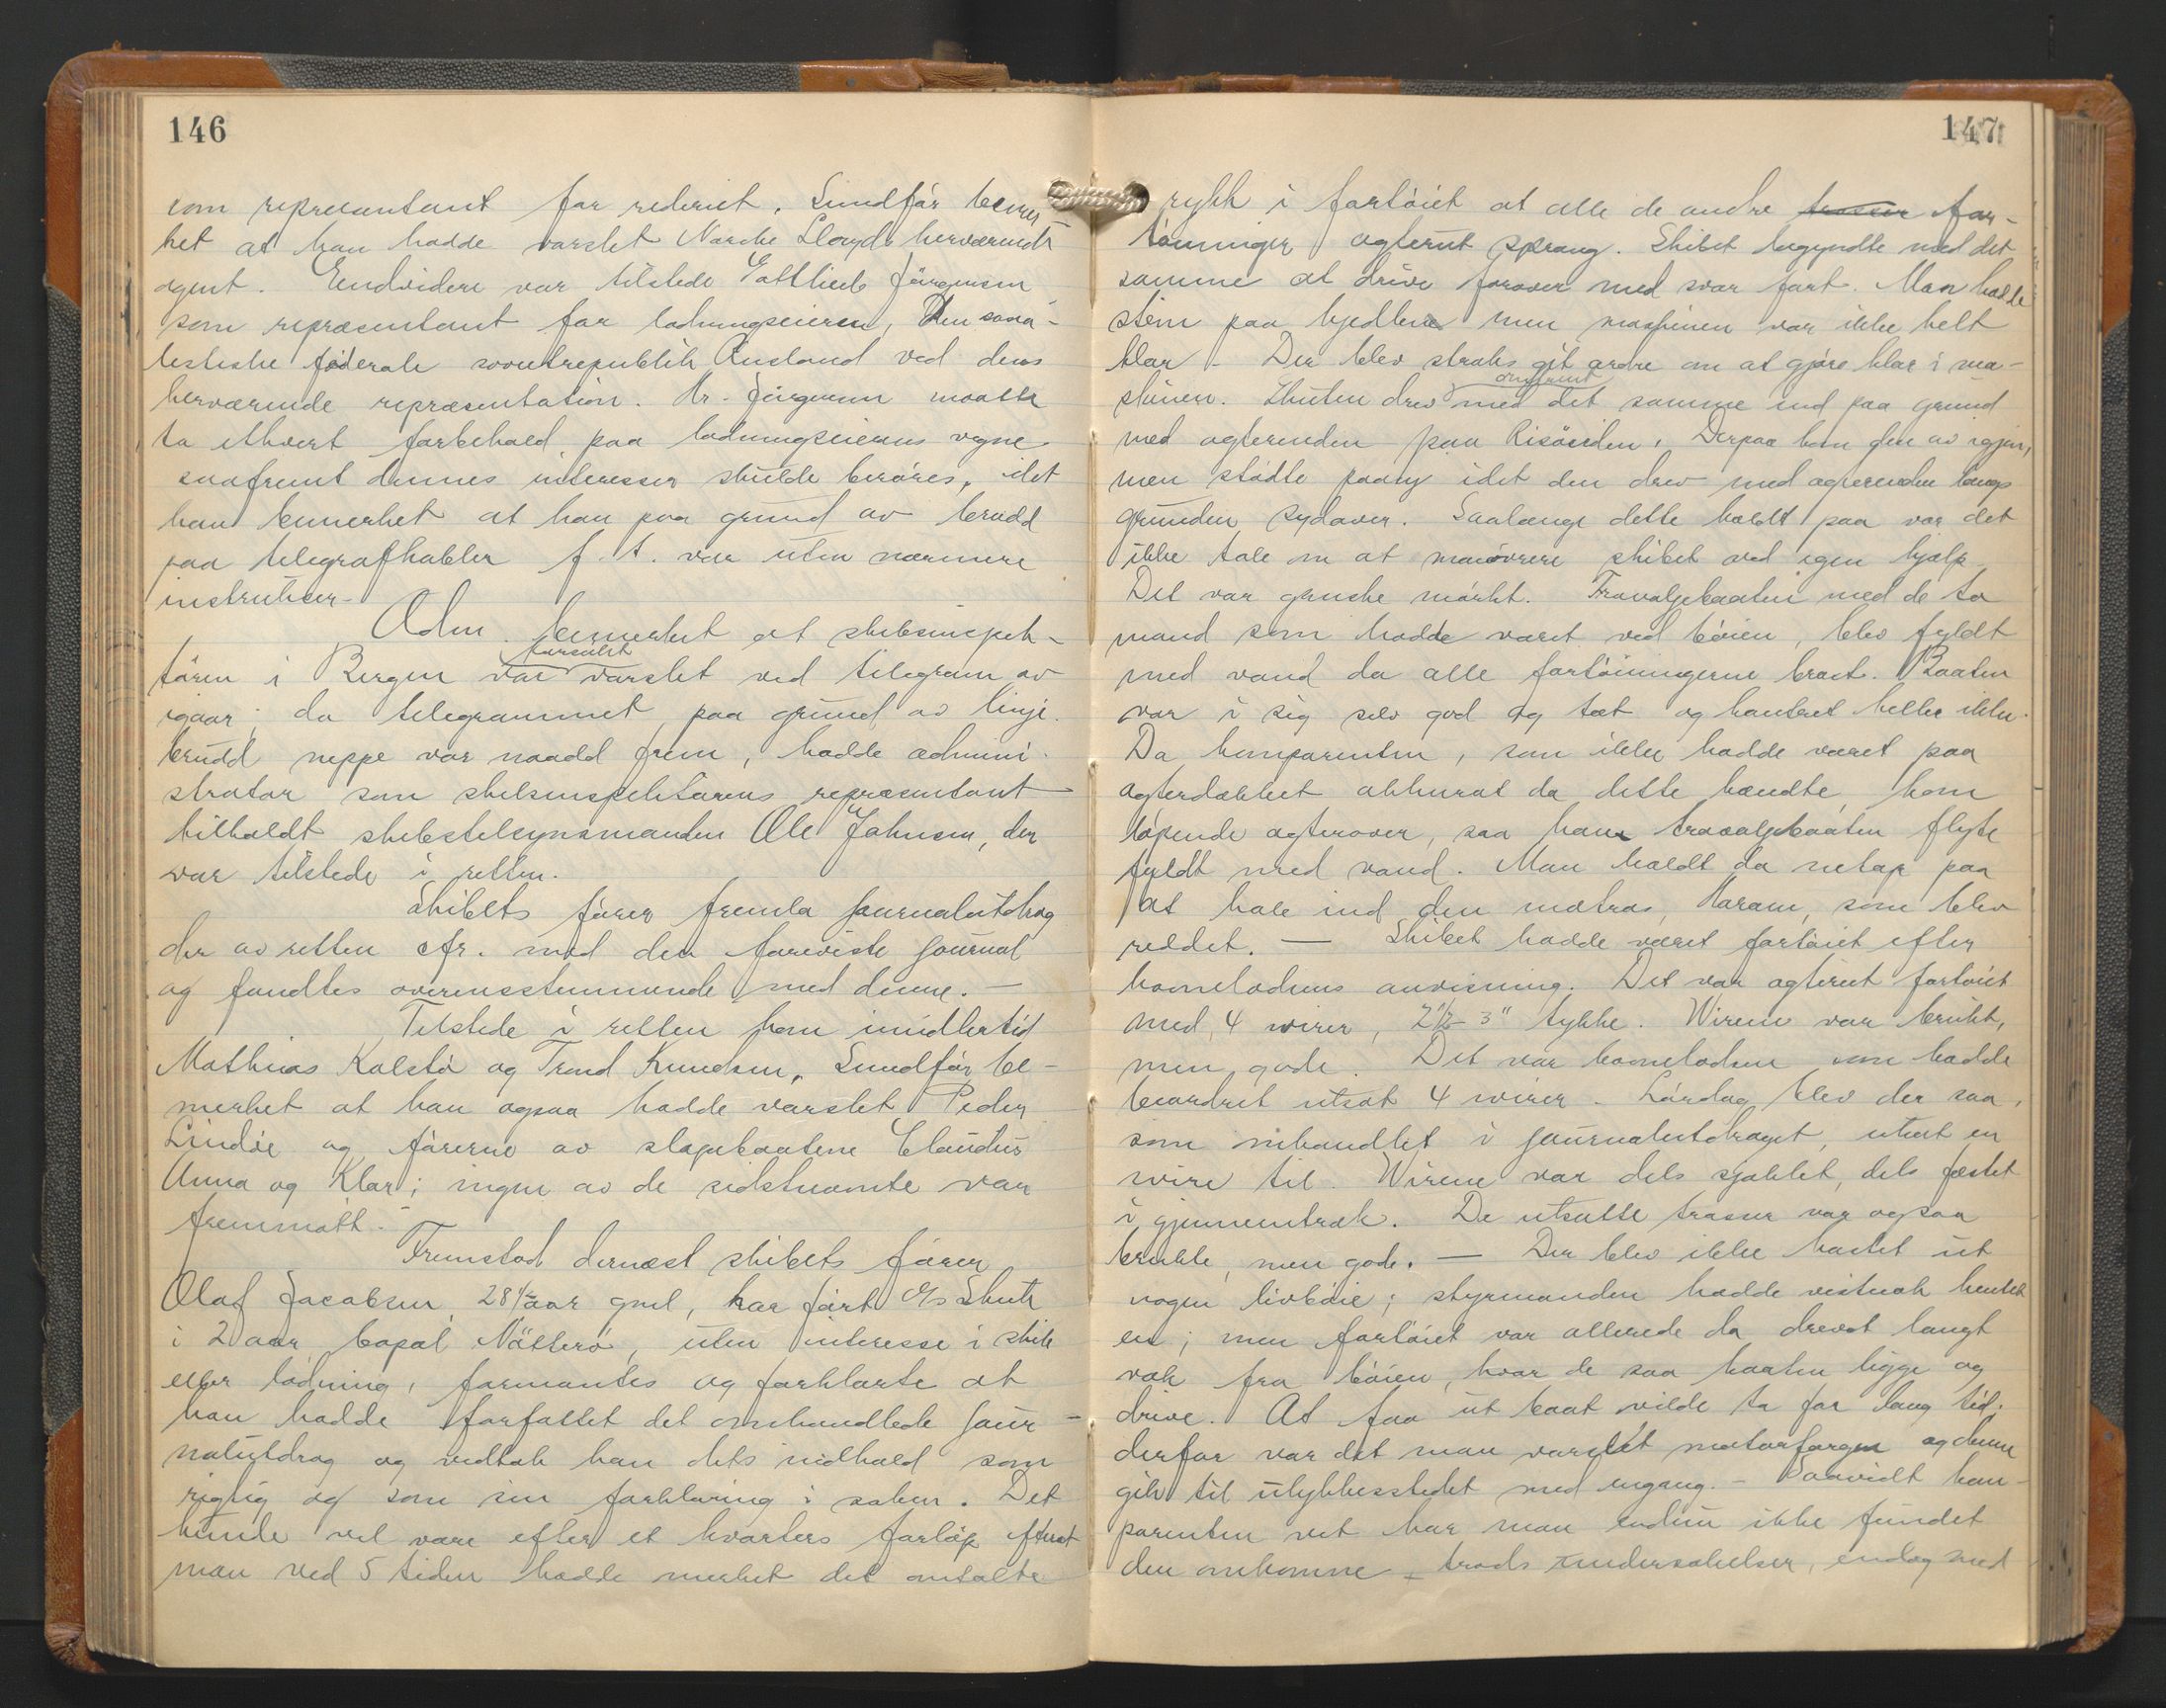 146
som repræsentant for rederiet. Sundfør bemer-
ket at han hadde varslet Norske Lloyds herværende
agent. Endvidere var tilstede Gottlieb Jørgensen
som repræsentant for ladningseieren, Den sosia-
listiske føderale sovietrepublik Rusland ved dens
herværende repræsentation. Hr. Jørgensen maatte
ta ethvert forbehold paa ladningseierens vegne
saafremt dennes interesser skulde berøres, idet
han bemerket at han paa grund av brudd
paa telegrafkabler f. t. var uten nærmere
instrukser.
Adm. bemerket at skibsinspek-
tøren i Bergen var forsøkt varslet ved telegram av
igaar; da telegrammet paa grund av linje-
brudd neppe var naadd frem, hadde admini-
strator som skibsinspektørens repræsentant
tilholdt skibstilsynsmanden Ole Johnsen, der
var tilstede i retten.
Skibets fører fremla journalutdrag
der av retten cfr. med den foreviste journal
og fandtes overensstemmende med denne. —
Tilstede i retten kom imidlertid
Mathias Kalstø og Trond Knudsen. Sundfør be-
merket at han ogsaa hadde varslet Peder
Lindøe og førerne av slæpebaatene Claudus
Anna og Klar; ingen av de sidstnævnte var
fremmøtt. -
Fremstod dernæst skibets fører
Olaf Jacobsen, 28½ aar gml, har ført S/S Skute
i 2 aar, bopæl Nøtterø, uten interesse i skib
eller ladning, formantes og forklarte at
han hadde forfattet det omhandlede jour-
nalutdrag og vedtok han dets indhold som
rigtig og som sin forklaring i saken. Det
kunde vel være efter et kvarters forløp efterat
man ved 5 tiden hadde merket det omtalte
147
rykk i fartøiet at alle de andre trosser for-
tøininger agterut sprang. Skibet begyndte med det
samme at drive forover med svær fart. Man hadde
stem paa kjedlene men maskinen var ikke helt
klar. - Der blev straks git ordre om at gjøre klar i ma-
skinen. Skuten drev omtrent med det samme ind paa grund
med agterenden paa Risøsiden. Derpaa kom den av igjen,
men stødte paany idet den drev med agterenden langs
grunden sydover. Saalænge dette holdt paa var det
ikke tale om at manøvrere skibet ved egen hjælp
Det var ganske mørkt. Travaljebaaten med de to
mand som hadde været ved bøien, blev fyldt
med vand da alle fortøiningerne brast. Baaten
var i sig selv god og tæt og kantret heller ikke.
Da komparenten, som ikke hadde været paa
agterdækket akkurat da dette hændte, kom
løpende agterover, saa han travaljebaaten flyte
fyldt med vand. Man holdt da netop paa
at hale ind den matros, Haram, som blev
reddet. — Skibet hadde været fortøiet efter
havnelodsens anvisning. Det var agterut fortøiet
med 4 wirer, 2½ - 3" tykke. Wirene var brukt,
men gode. Det var havnelodsen som hadde
beordret utsat 4 wirer. Lørdag blev der saa,
som omhandlet i journalutdraget, utsat en
wire til. Wirene var dels sjaklet, dels fæstet
i gjennemtræk. De utsatte trosser var ogsaa
brukte, men gode. — Der blev ikke kastet ut
nogen livbøie; styrmanden hadde vistnok hentet
en; men fartøiet var allerede da drevet langt
væk fra bøien, hvor de saa baaten ligge og
drive. At faa ut baat vilde ta for lang tid,
derfor var det man varslet motorfærgen og denne
gik til ulykkesstedet med engang. - Saavidt kom-
parenten vet har man endnu ikke fundet
den omkomne trods undersøkelser, endog med